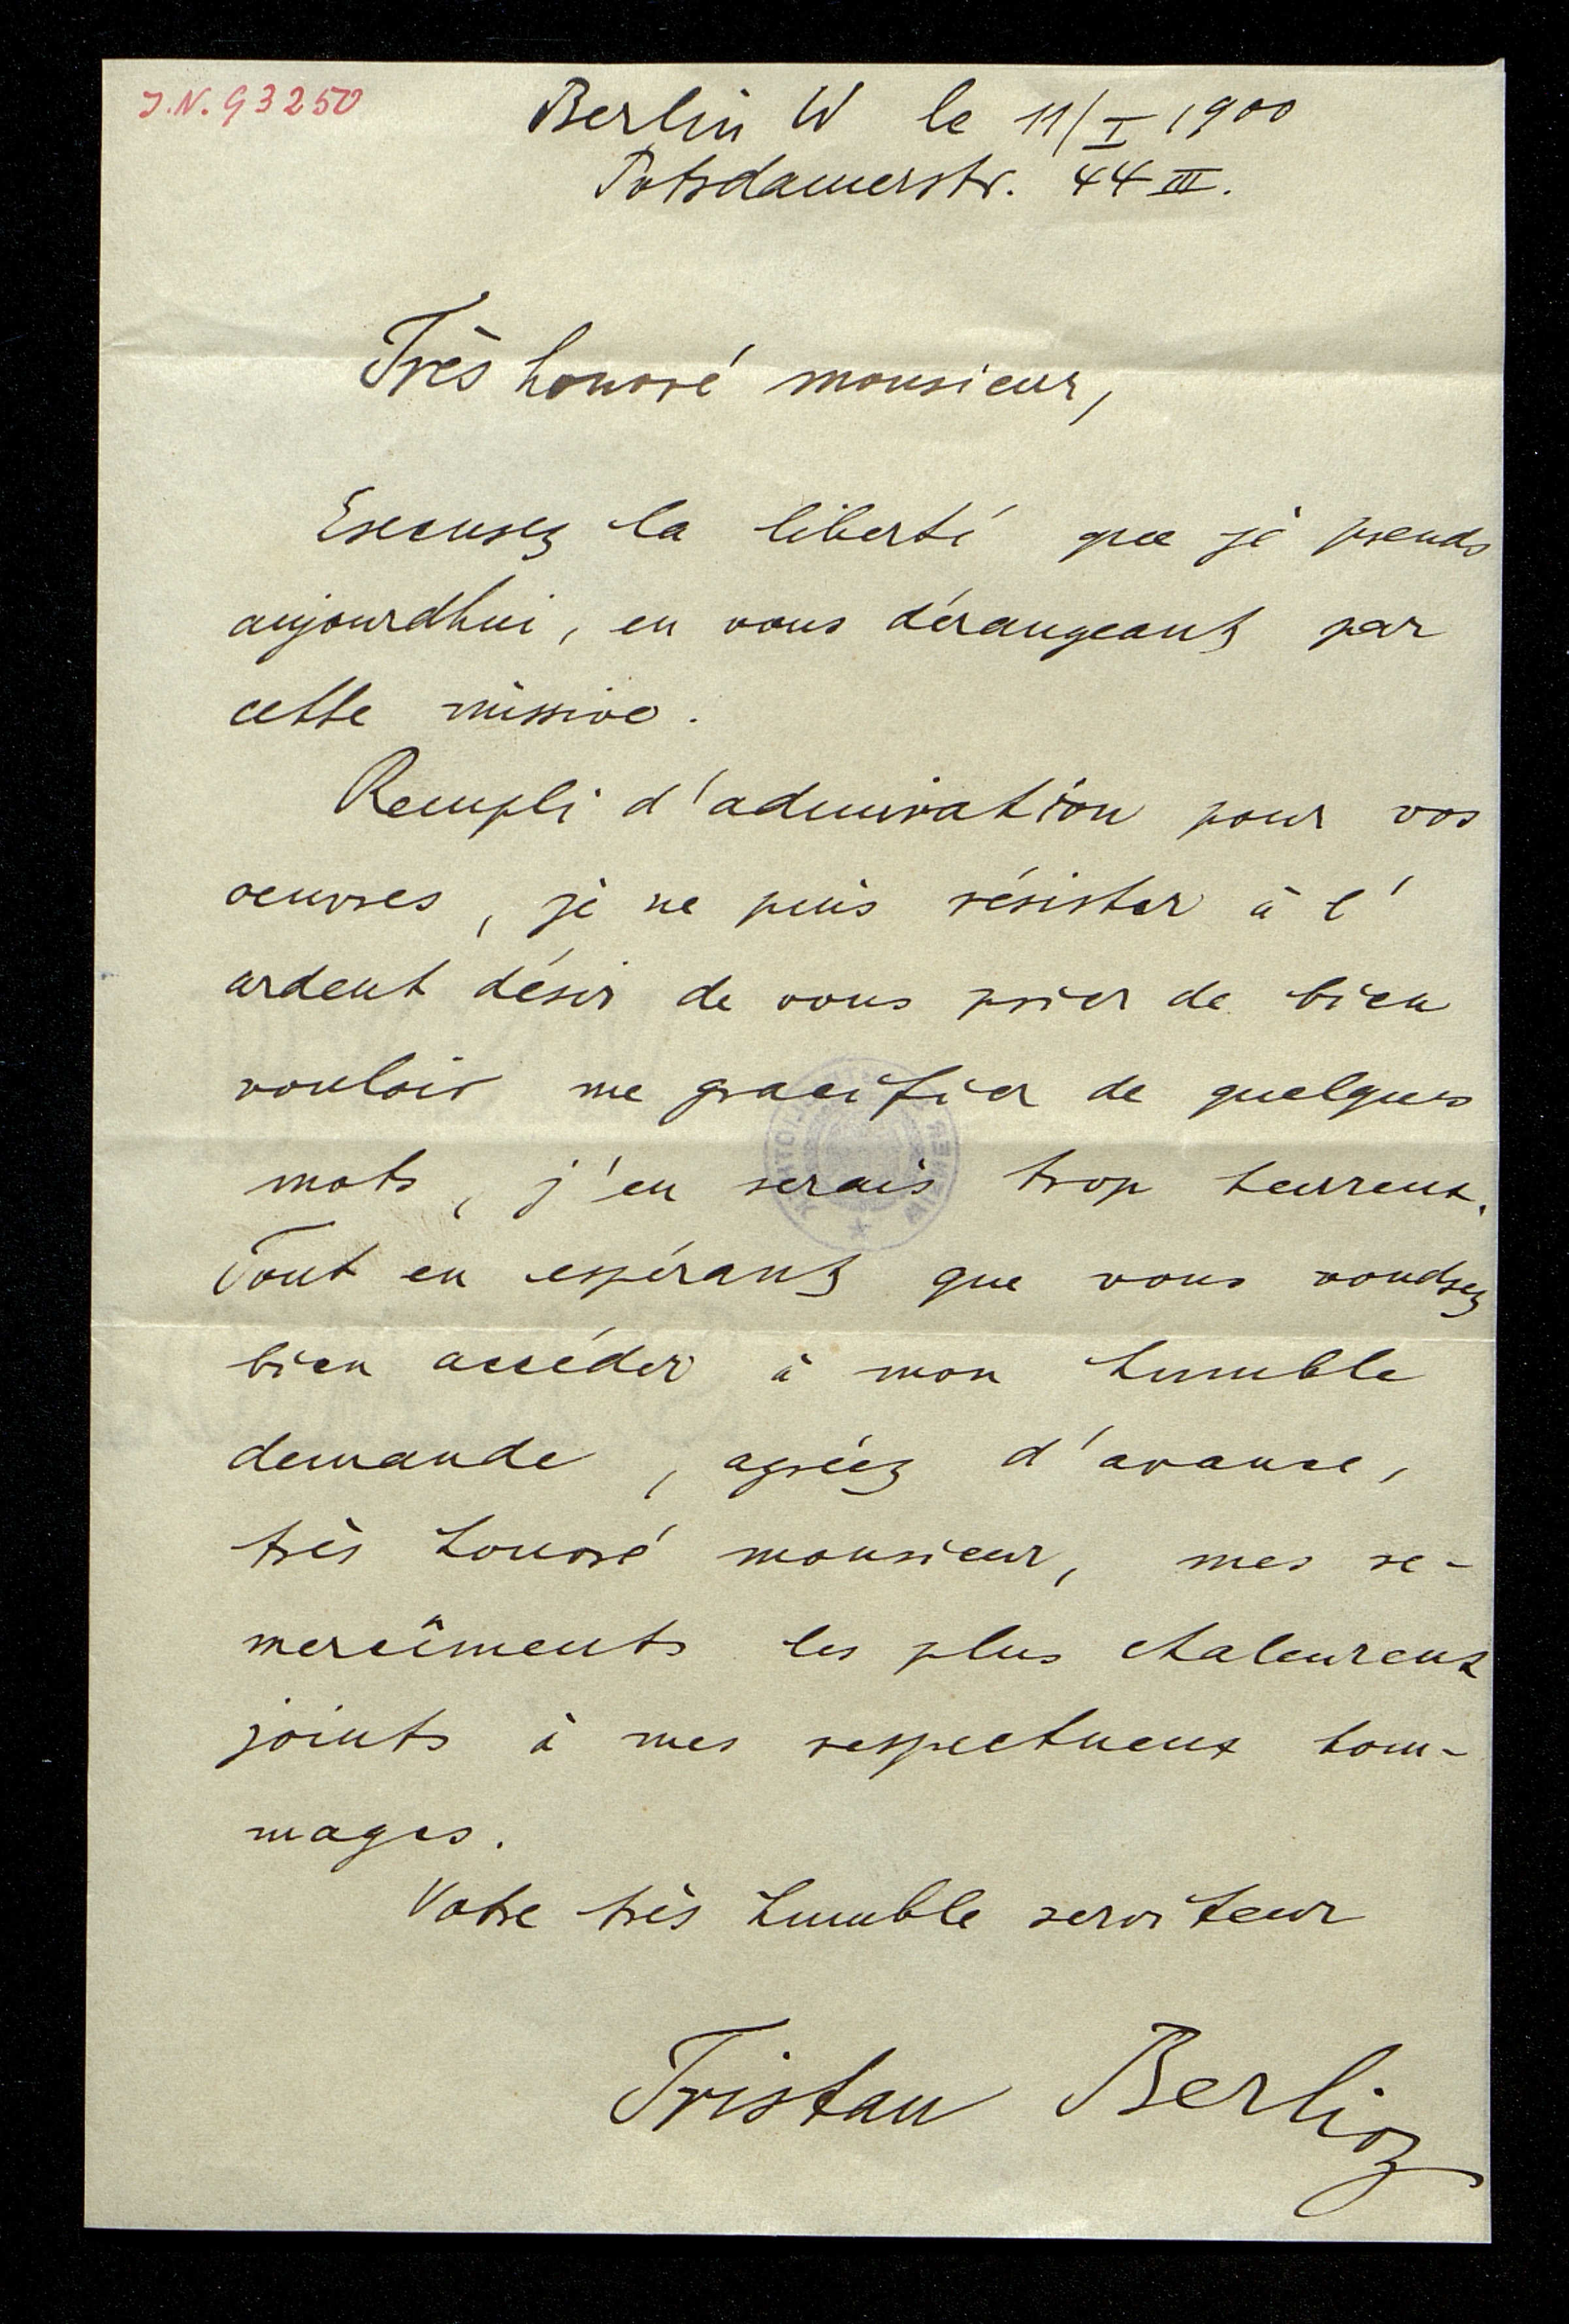 J.N. 93250
Berlin W le 11/I 1900
Potsdamerstr. 44 III.
Très honoré monsieur,
Excusez la liberté que je prends
aujourdhui, en vous dérangeant par
cette missive.
Rempli d'admiration pour vos
oeuvres, je ne puis résister à l'
ardent désir de vous prier de bien
vouloir me gracifier de quelques
mots, j'en serais trop heureux.
Tout en espérant que vous voudrez
bien accéder à mon humble
demande, agréez d'avance,
très honoré monsieur, mes re-
mercîments les plus chaleureux
joints à mes respectueux hom-
mages.
Votre très humble serviteur
Tristan Berlioz